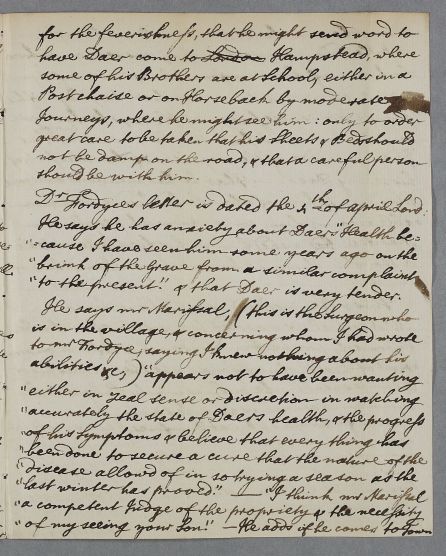 for the feverishness, that he might send word to
have Daer come to London Hampstead, where
some of his Brothers are at School, either in a
Post chaise or on Horseback by moderate
Journeys, where he might see him: only to order
great care to be taken that his Sheets & Beds should
not be damp on the road, & that a careful person
should be with him.
Dr Fordyce's letter is dated the 4th of april Lond:
He says he has anxiety about Daers "Health be-
"cause I have seen him some years ago on the
"brink of the Grave from a similar complaint
"to the present" & that Daer is very tender.
He says mr Marifsal, (this is the Surgeon who
is in the village, & concerning whom I had wrote
to mr Fordyce, saying I knew nothing about his
abilities &c,) "appears not to have been wanting
"either in Zeal sense or discretion in watching
"accurately the state of Daers health, & the progress
"of his Symptoms & believe that every thing has
"been done to secure a cure that the nature of the
"disease allowd of in so trying a season as the
"last winter has proved" — "I think mr Marifsal
"a competent Judge of the propriety & the necessity
"of my seeing your Son." — He adds if he comes to Town